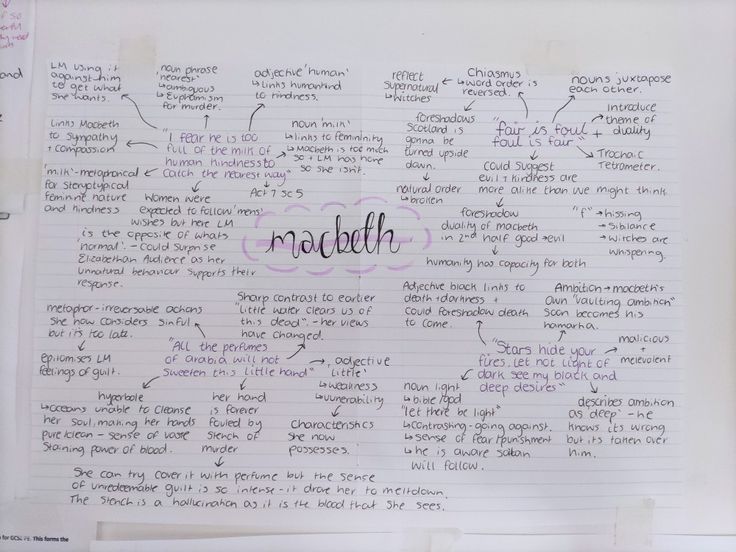 LM using it
against him
to get what
she wants.
noun phrase
'nearest'
↳ ambiguous
↳ Euphamism
for murder.
adjective 'human'
↳ links humankind
to kindness.
links Macbeth
to sympathy
+ compassion
noun 'milk'
↳ links to femininity
↳ Macbeth is too much
so + LM has none
so she isn't.
"I fear he is too
full of the milk of
human kindness to
Catch the nearest way"
Act 1 Sc 5
'milk' - metaphorical
for steryptypical
feminine nature
and kindness
Women were
expected to follow 'mens'
wishes but here LM
is the opposite of whats
'normal'. - Could surprise
Elizabethan Audience as her
unnatural behaviour supports their
response.
reflect
Supernatural
↳ witches
Chiasmus
↳ word order is
reversed.
nouns juxtapose
each other.
foreshadows
Scotland is
gonna be
turned upside
down.
natural order
↳ broken
"fair is foul +
foul is fair"
introduce
theme of
duality
Trochaic
Tetrometer.
Could suggest
evil + kindness are
more alike than we might think.
foreshadow
duality of macbeth
in 2nd half good → evil
humanity has capacity for both
"f" → hissing
→ Siblance
→ witches are
whispering.
macbeth
metaphor - irreversable actions
She now considers sinful
but it's too late.
Sharp contrast to earlier
"little water clears us of
this dead". - her views
have changed.
"All the perfumes
of arabia will not
sweeten this little hand"
epitomises LM
feelings of guilt.
adjective
'little'
↳ weakness
↳ vunverability
Characteristics
She now
possesses.
hyperbole
↳ oceans unable to cleanse
her soul, making her hands
pure/clean - sense of vaste
Staining power of blood.
her hand
is forever
fouled by
stench of
murder
She can try cover it with perfume but the sense
of unredeemable guilt is so intense - it drove her to meltdown.
The stench is a hallucination as it is the blood that she sees.
Adjective black links to
death + darkness +
Could foreshadow death
to come.
Ambition → macbeth's
own "vaulting ambition"
soon becomes his
hamartia.
"Stars hide your
fires. let not light of
dark see my black and
deep desires"
malicious
+
melevolent
noun light
↳ bible/god
"let there be light"
↳ contrasting - going against.
↳ sense of fear/punishment
↳ he is aware satan
will follow.
describes ambition
as 'deep' - he
knows its wrong
but its taken over
him.
and
This forms the